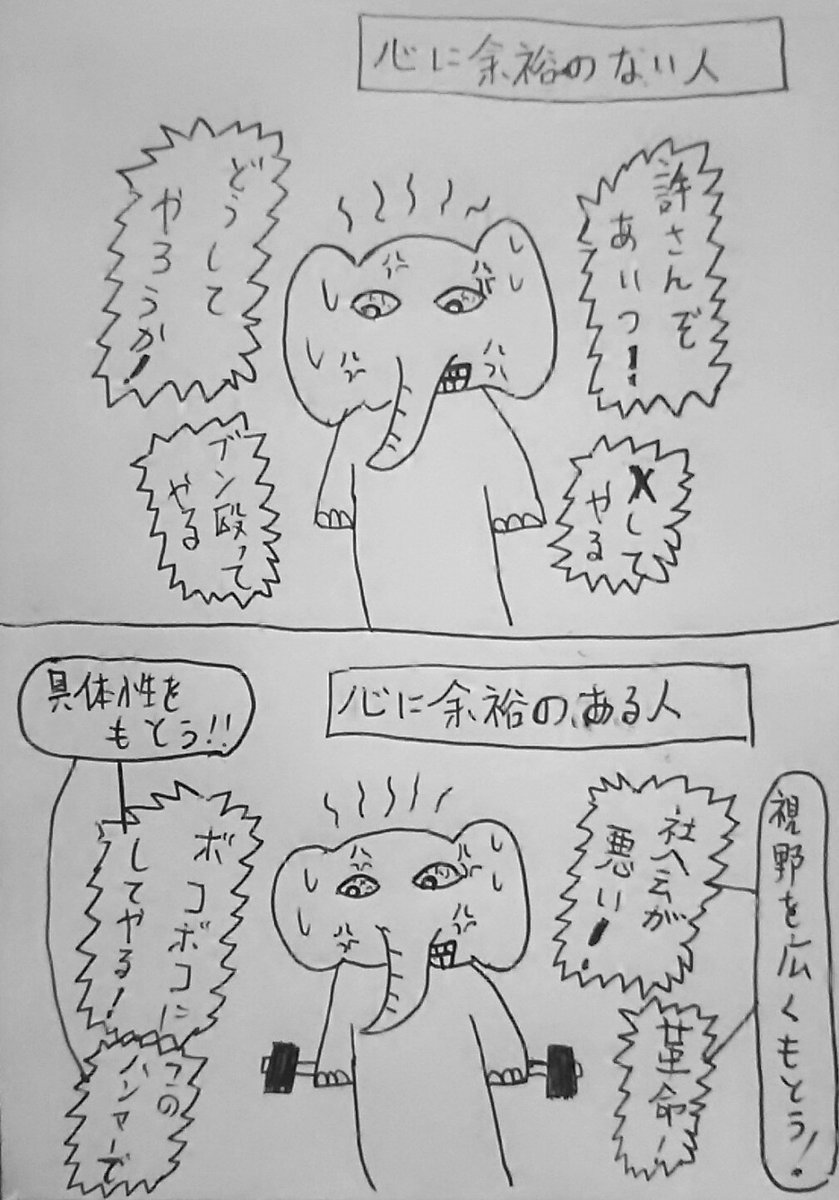 心に余裕のない人
許さんぞ
あいつ!
Xして
やる
どうして
やろうか!
ブン殴って
やる
心に余裕のある人
視野を広くもとう!
社会が
悪い!
革命!
具体性を
もとう!!
ボコボコに
してやる!
ハンマーで